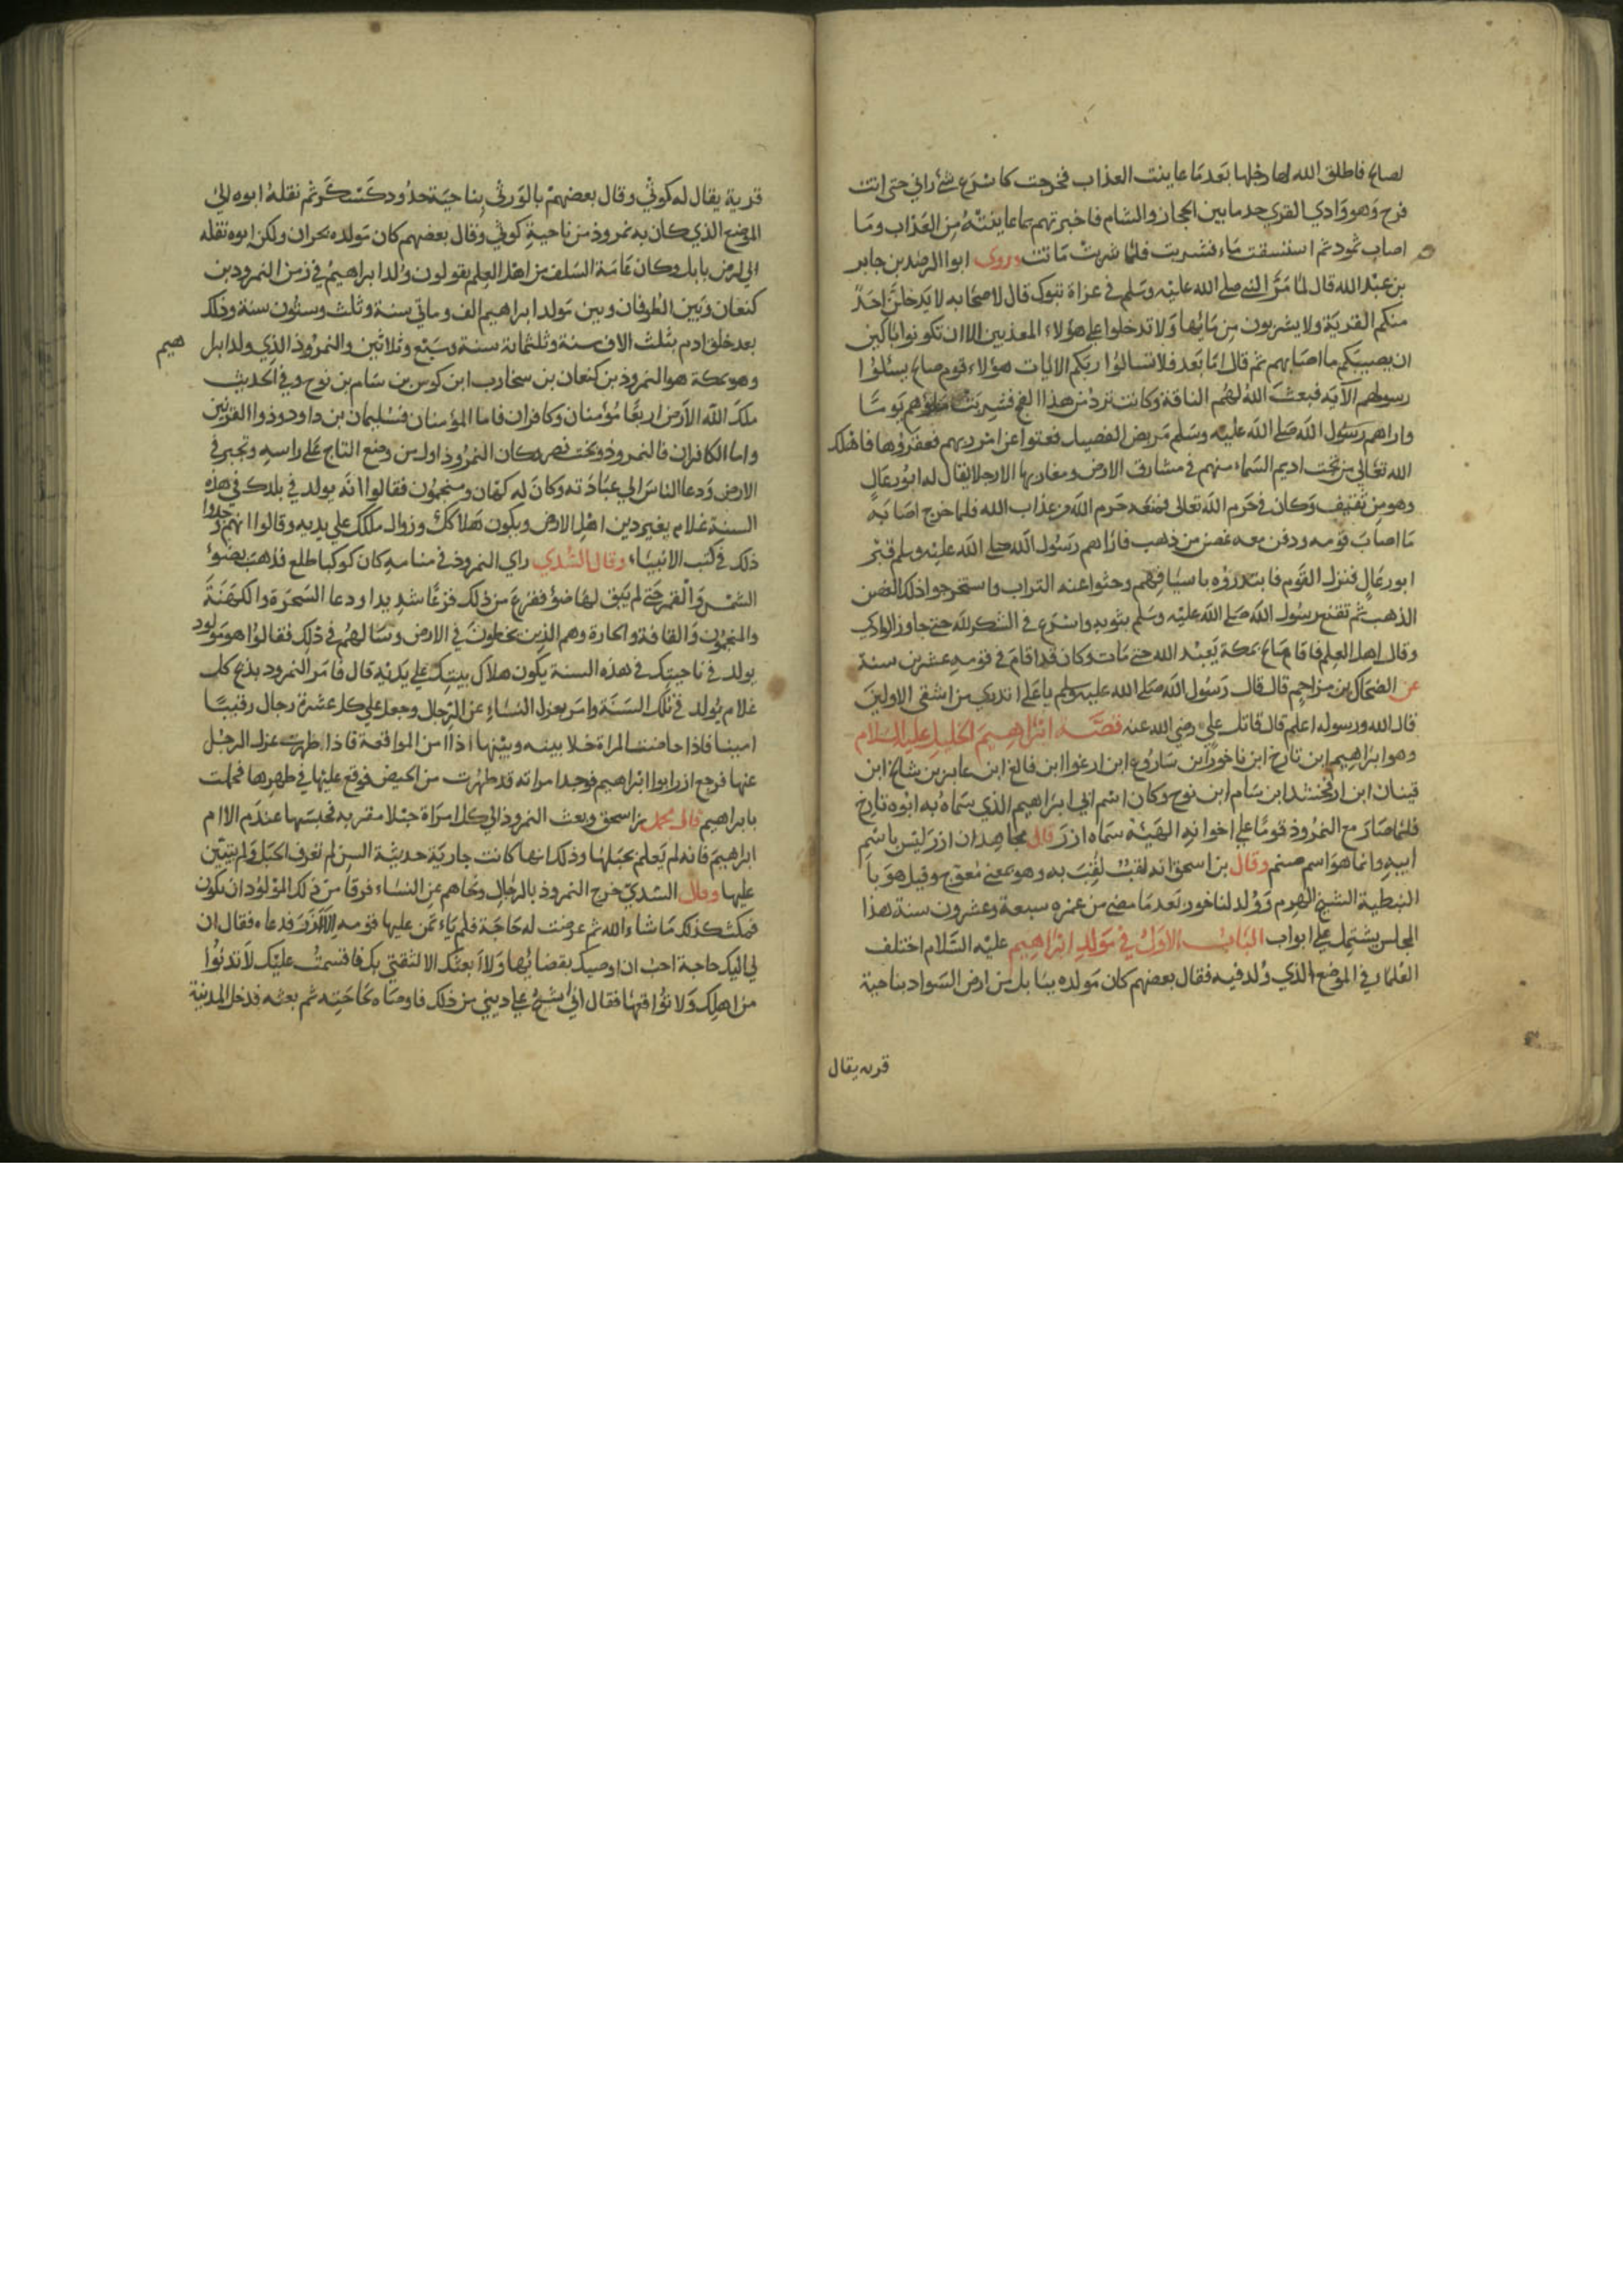 لصالح فاطلق الله لها رجلها بعد ما عاينت العذاب فخرجت كاسرع شئ راني حتى اتت
فرح وهو وادي القري حد ما بين الحجاز والشام فاخبرتهم بما عاينته من العذاب وما
اصاب ثمود ثم استسقت ماء فشربت فلما شربت ماتت وروى ابوا الرضد بن جابر
بن عبد الله قال لما مر النبي صلى الله عليه وسلم في غزاة تبوك قال لاصحابه لا يدخلن احد
منكم القرية ولا يشربون من مائها ولا تدخلوا على هؤلاء المعذبين الا ان تكونوا باكين
ان يصيبكم ما اصابهم ثم قال اما بعد فلا تسالوا ربكم الايات هؤلاء قوم صالح سئلوا
رسولهم الآية فبعث الله لهم الناقة وكانت ترد من هذا الفج فشربت ماؤهم يوما
واراهم رسول الله صلى الله عليه وسلم مربض الفصيل فعتوا عن امر ربهم فعقروها فاهلك
الله تعالى من تحت اديم السماء منهم في مشارق الارض ومغاربها الا رجلا يقال له ابو رعال
وهو من ثقيف وكان في حرم الله تعالى فمنعه حرم الله من عذاب الله فلما خرج اصابه
ما اصاب قومه ودفن معه غصن من ذهب فاراهم رسول الله صلى الله عليه وسلم قبر
ابو رعال فنزل القوم فابتدروه باسيافهم وحثوا عنه التراب واستخرجوا ذلك الغصن
الذهب ثم تقنع رسول الله صلى الله عليه وسلم بثوبه واسرع في الشكر لله حتى جاوز الوادي
وقال اهل العلم فاقام صالح بمكة يعبد الله حتى مات وكان قد اقام في قومه عشرين سنة
عن الضحاك بن مزاحم قال قال رسول الله صلى الله عليه وسلم يا علي اتدري من اشقى الاولين
قال الله ورسوله اعلم قال قاتلك علي رضي الله عنه قصة ابراهيم الخليل عليه السلام
وهو ابراهيم ابن تارخ ابن ناخور ابن ساروع ابن ارغوا ابن فالغ ابن عابر بن شالخ ابن
قينان ابن ارفخشد ابن سام ابن نوح وكان اسم ابي ابراهيم الذي سماه به ابوه تارخ
فلما صار مع النمروذ قوما على اخوانه الهيئة سماه ازر قال مجاهد ان ازر ليس باسم
ابيه وانما هو اسم صنم وقال بن اسحق انه لقب لقب به وهو بمعنى معوج وقيل هو با
النبطية الشيخ الهرم وولد لناخور بعد ما مضى من عمره سبعة وعشرون سنة هذا
المجلس يشتمل على ابواب الباب الاول في مولد ابراهيم عليه السلام اختلف
العلما في الموضع الذي ولد فيه فقال بعضهم كان مولده ببابل من ارض السواد بناحية
قرىه يقال
قرية يقال له كوثي وقال بعضهم بالورثي بناحية حدود كسكر ثم نقله ابوه الى
الموضع الذي كان به نمروذ من ناحية كوثي وقال بعضهم كان مولده بحران ولكن ابوه نقله
الى ارض بابل وكان عامة السلف من اهل العلم يقولون ولد ابراهيم في زمن النمرود بن
كنعان وبين الطوفان وبين مولد ابراهيم الف وماتي سنة وثلث وستون سنة وذلك
بعد خلق ادم بثلث الاف سنة وثلثماىة سنة وسبع وثلاثين والنمروذ الذي ولد ابر هيم
وهو بمكة هو النمروذ بن كنعان بن سخارب ابن كوس بن سام بن نوح وفي الحديث
ملك الله الارض اربعا مؤمنان وكافران فاما المؤمنان فسليمان بن داود وذوا القرنين
واما الكافران فالنمروذ وبخت نصر وكان النمروذ اول من وضع التاج على راسه وتجبر في
الارض ودعا الناس الي عبادته وكان له كهان ومنجمون فقالوا انه يولد في بلدك في هذه
السنة غلام يغير دين اهل الارض ويكون هلاكك وزوال ملكك على يديه وقالوا انهم وجدوا
ذلك في كتب الانبياء وقال السدي راي النمروذ في منامه كان كوكبا طلع فذهب بضوء
الشمس والقمر حتى لم يبق لهما ضوؤ ففزع من ذلك فزعا شديدا ودعا السحرة والكهنة
والمنجمون والقافة والحارة وهم الذين يخطون في الارض وسالهم في ذلك فقالوا هو مولود
يولد في ناحيتك في هذه السنة يكون هلاك بيتك على يديه قال فامر النمرود بذبح كل
غلام يولد في تلك السنة وامر بعزل النساء عن الرجال وجعل على كل عشرة رجال رقيبا
امينا فاذا حاضت المراة خلا بينه وبينها اذا امن المواقعة فاذا طهرت عزل الرجل
عنها فرجع ازر ابوا ابراهيم فوجد امراته قد طهرت من الحيض فوقع عليها في طهرها فحملت
بابراهيم قال محمد بن اسحق وبعث النمروذ الى كل امراة حبلا مقربه فحبسها عنده الا ام
ابراهيم فانه لم يعلم بحبلها وذلك انها كانت جارية حديثة السن لم تعرف الحبل ولم يتبين
عليها وقال السدي خرج النمروذ بالرجال ونحاهم عن النساء فرقا من ذلك المولود ان يكون
فمكث كذلك ما شاء الله ثم عرضت له حاجة فلم ياءتمن عليها قومه الا ازر فدعاه فقال ان
لي اليك حاجة احب ان اوصيك بقضائها ولا ابعثك الا لثقتي بك فاقسمت عليك لا تدنوا
من اهلك ولا تواقعها فقال اني اشح على ديني من ذلك فاوصاه بحاجته ثم بعثه فدخل المدينة